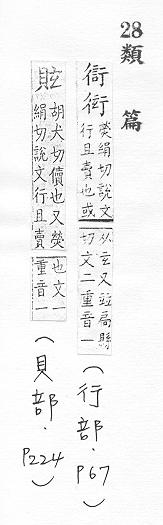 28 類篇
𧗳衒
熒絹切說文
行且賣也或
从玄又竝扃縣
切文二重音一
(行部·P67)
胡犬切儥也又熒
絹切說文行且賣
也文一
重音一
(貝部·P224)